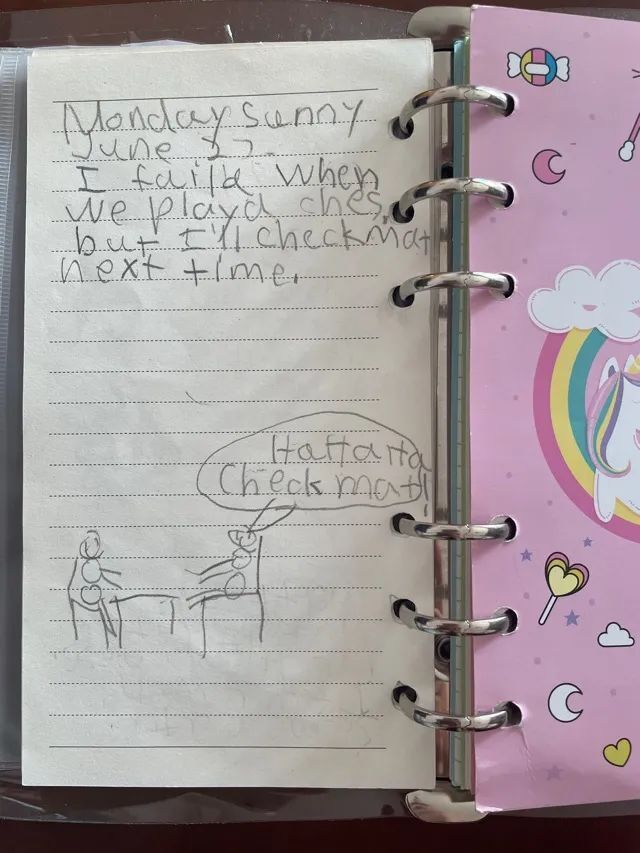 Monday Sunny
June 27.
I faild when
we playd ches,
but I'll checkmat
next time.
HaHaHa
Checkmat!